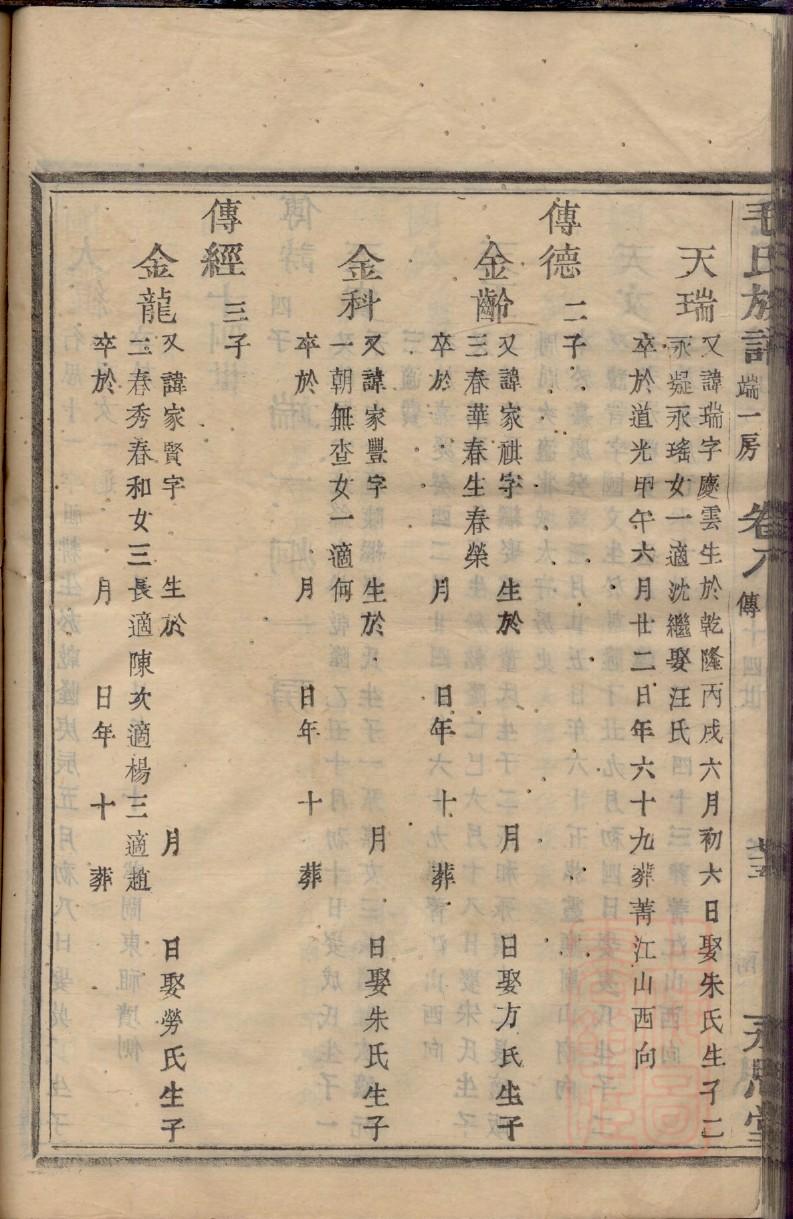 毛氏族譜 端一房 卷八 傳 十四世 廿三 永思堂
天瑞 又諱瑞字慶雲生於乾隆丙戌六月初六日娶朱氏生子二
永嶷永瑤女一適沈繼娶汪氏
卒於道光甲午六月廿二日年六十九葬菁江山西向
傳德 二子
金齡 又諱家祺字 生於 月 日娶方氏生子
三春華春生春榮
卒於 月 日年 十 葬
金科 又諱家豐字 生於 月 日娶朱氏生子
一朝無查女一適何
卒於 月 日年 十 葬
傳經 三子
金龍 又諱家賢字 生於 月 日娶勞氏生子
二春秀春和女三長適陳次適楊三適趙
卒於 月 日年 十 葬